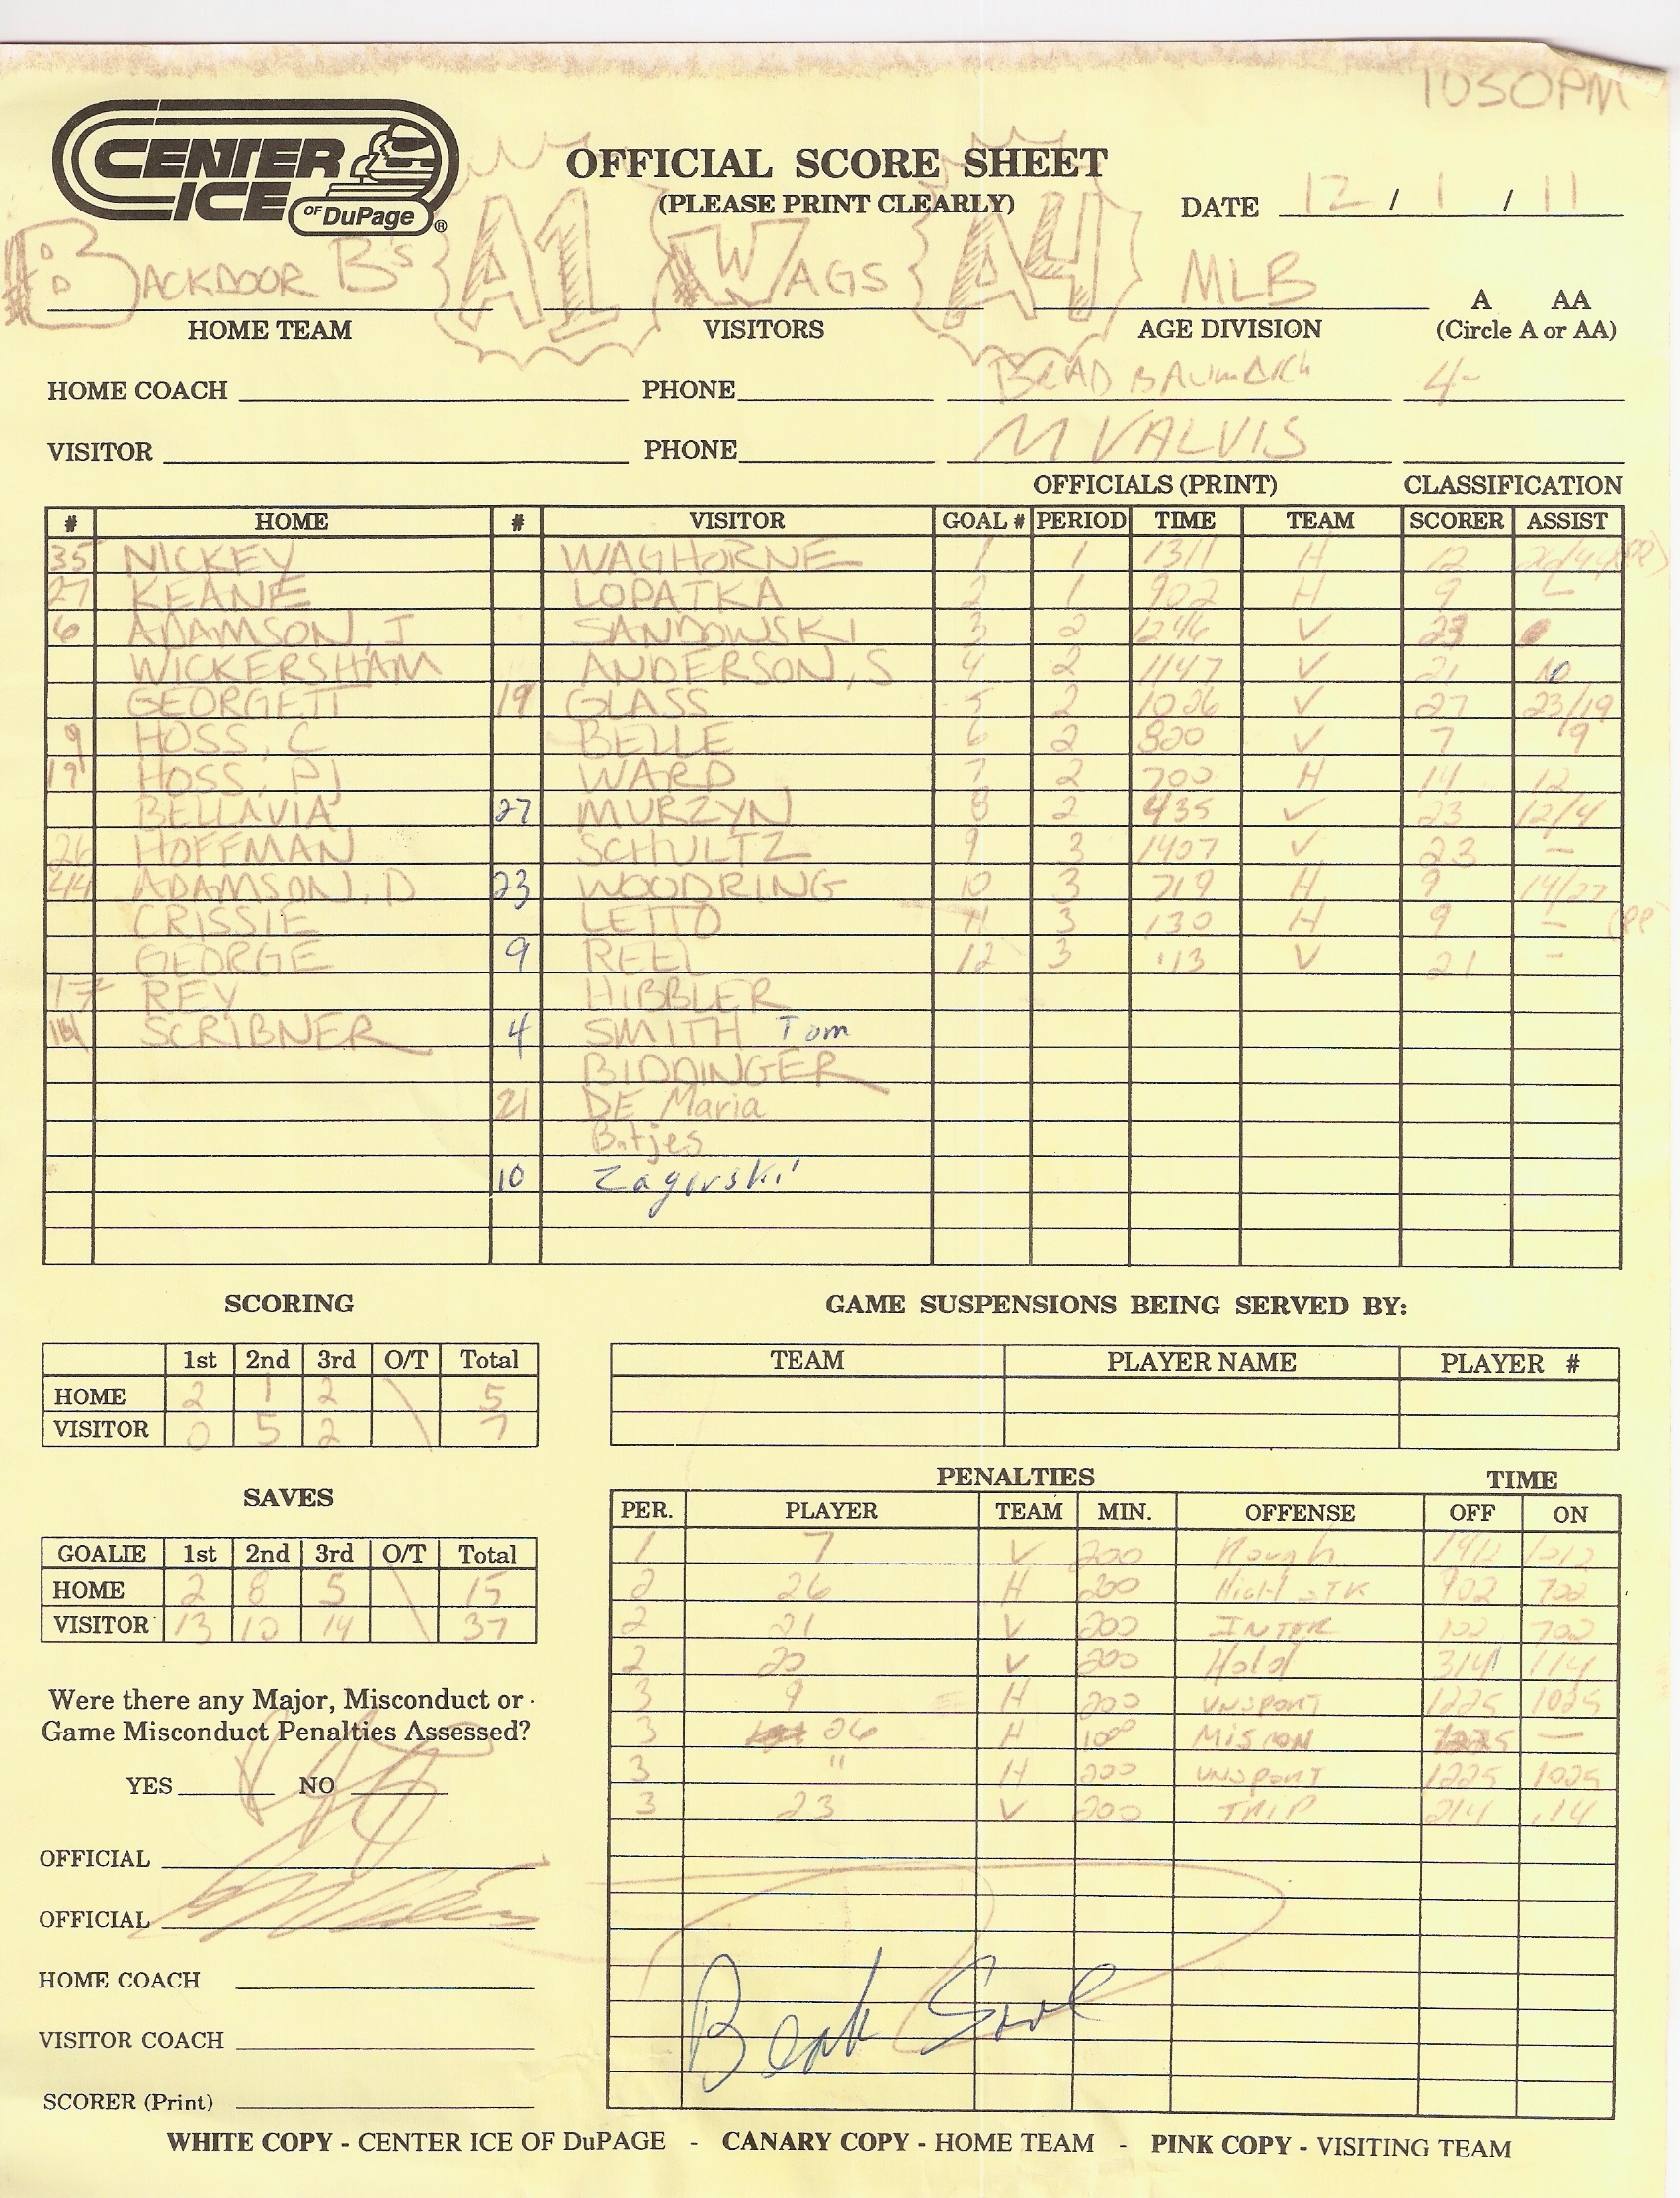 1030PM
CENTER ICE OF DuPage ®
OFFICIAL SCORE SHEET
(PLEASE PRINT CLEARLY)
DATE 12 / 1 / 11
BACKDOOR B's A1 WAGS A4 MLB A AA
HOME TEAM VISITORS AGE DIVISION (Circle A or AA)
HOME COACH PHONE BRAD 4-
VISITOR PHONE M VALVIS
OFFICIALS (PRINT) CLASSIFICATION
# HOME # VISITOR GOAL # PERIOD TIME TEAM SCORER ASSIST
35 NICKEY WAGHORNE 1 1 1311 H 12
27 KEANE LOPATKA 2 1 902 H 9 -
6 ADAMSON, J SANDOWSKI 3 2 1246 V 23
WICKERSHAM ANDERSON, S 4 2 1147 V 21 10
GEORGETT 19 GLASS 5 2 1026 V 27 23/19
9 HOSS, C BELLE 6 2 820 V 7 9
19 HOSS, PJ WARD 7 2 700 H 14 12
BELLAVIA 27 MURZYN 8 2 435 V 23 12/4
26 HOFFMAN SCHULTZ 9 3 1407 V 23 -
44 ADAMSON, D 23 WOODRING 10 3 719 H 9 14/27
CRISSIE LETTO 11 3 130 H 9 - (PP
GEORGE 9 REEL 12 3 :13 V 21 -
17 REY HIBBLER
14 SCRIBNER 4 SMITH Tom
BIDDINGER
21 DE Maria
Batjes
10 Zagorski
SCORING
1st 2nd 3rd O/T Total
HOME 2 1 2 \ 5
VISITOR 0 5 2 \ 7
GAME SUSPENSIONS BEING SERVED BY:
TEAM PLAYER NAME PLAYER #
SAVES
GOALIE 1st 2nd 3rd O/T Total
HOME 2 8 5 \ 15
VISITOR 13 10 14 \ 37
PENALTIES TIME
PER. PLAYER TEAM MIN. OFFENSE OFF ON
1 7 V 200 Rough 1012
2 26 H 200 High STK 902 702
2 21 V 200 INTER 702
2 20 V 200 Hold 314 114
3 9 H 200 UNSPORT 1225 1025
3 26 H 1000 MISCON 1225 —
3 " H 200 UNSPORT 1225 1025
3 23 V 200 TRIP 214 :14
Were there any Major, Misconduct or
Game Misconduct Penalties Assessed?
YES NO
OFFICIAL
OFFICIAL
HOME COACH
VISITOR COACH
SCORER (Print)
WHITE COPY - CENTER ICE OF DuPAGE - CANARY COPY - HOME TEAM - PINK COPY - VISITING TEAM